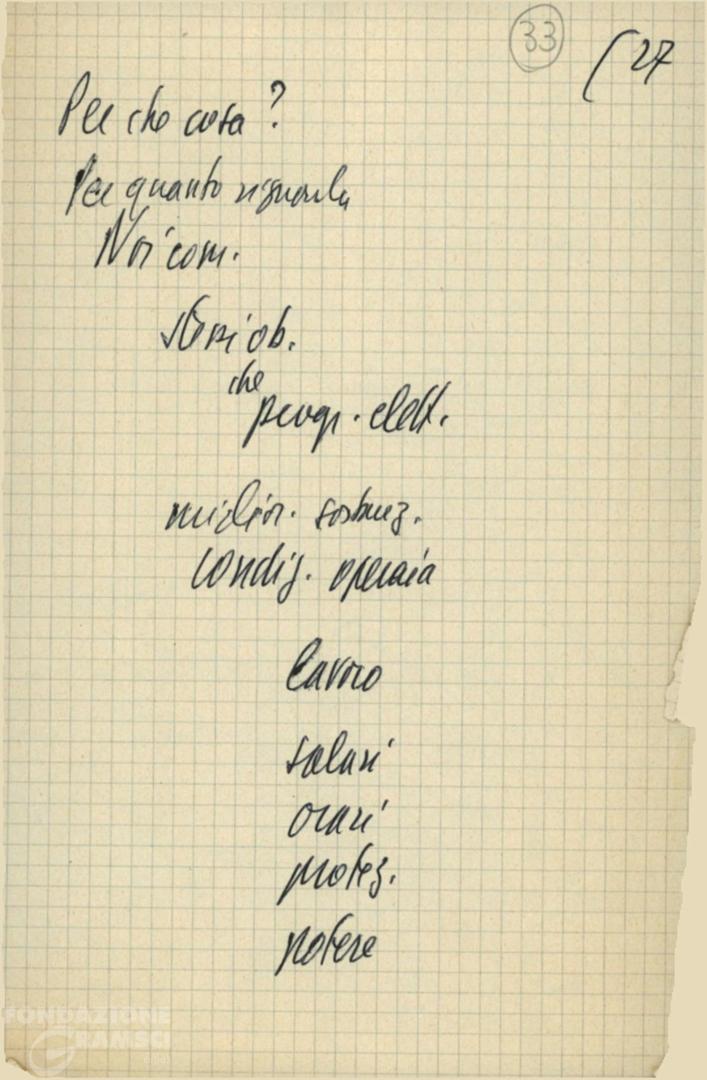 33 (27
Per che cosa?
Per quanto riguarda
Noi com.
stessi ob.
che
progr. elett.
miglior. sostanz.
condiz. operaia
lavoro
salari
orari
protez.
potere
FONDAZIONE
GRAMSCI